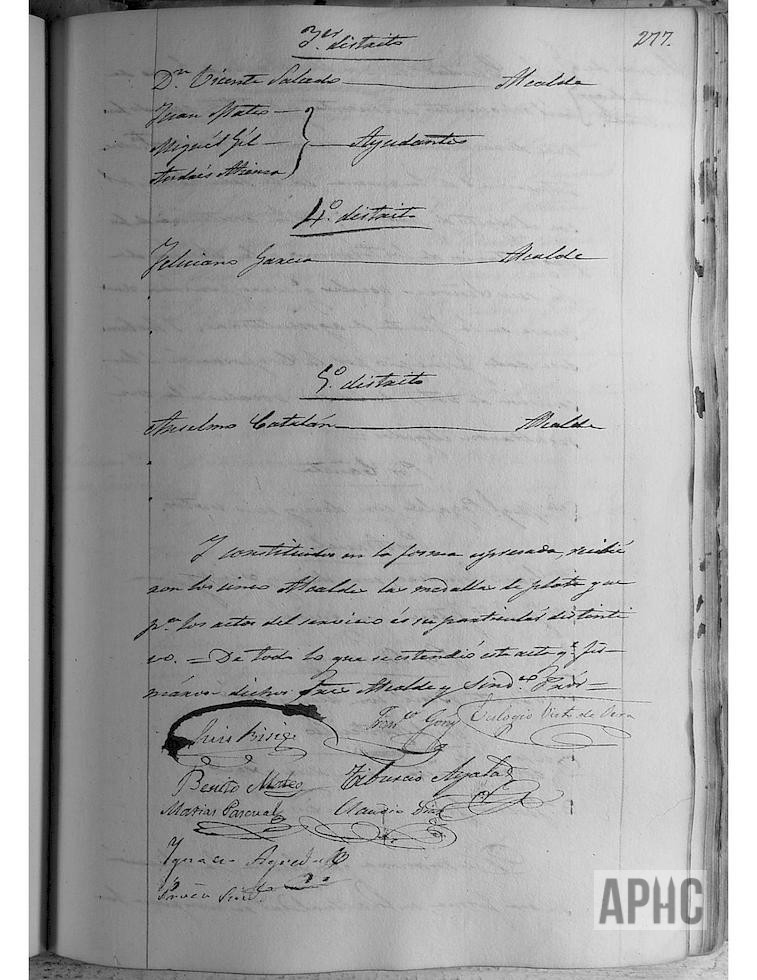 277.
3er. distrito
Dn. Vicente Salcedo Alcalde
Juan Mateo
Miguél Gil Ayudantes
Andrés Atienza
4º. distrito
Feliciano Garcia Alcalde
5º. distrito
Anselmo Catalán Alcalde
Y constituidos en la forma expresada, recibie
ron los cinco Alcalde la medalla de plata que
pa. los actos del servicio és su particular distenti
vo. = De todo lo que se estendió ésta acta qe. fir-
máron dichos Alcalde y Sind.
Luis
Eulogio de Vera
Benito Mateo Tiburcio Ayala
Matias Pascual Claudio
Ygnacio
APHC